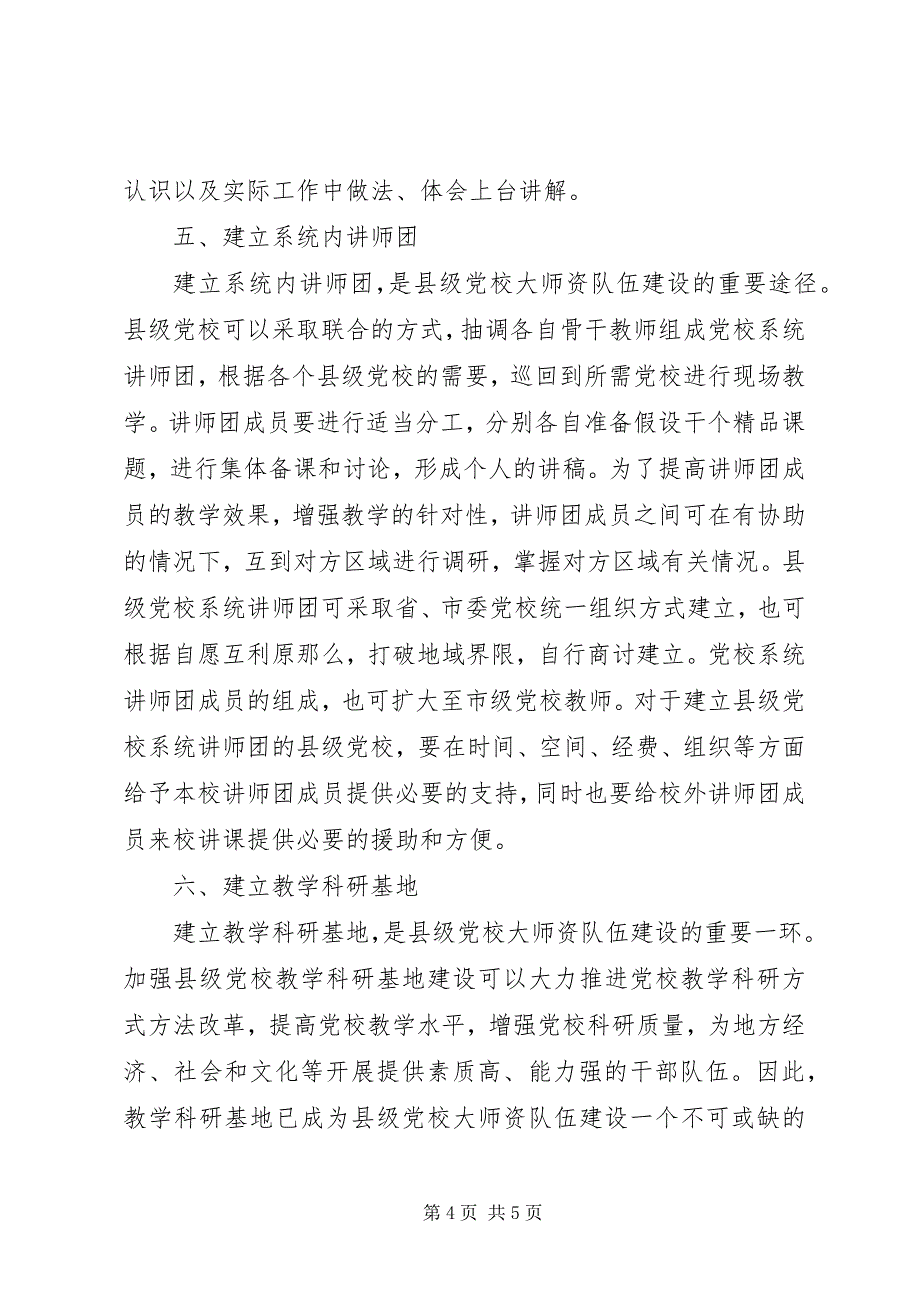 认识以及实际工作中做法、体会上台讲解。
五、建立系统内讲师团
建立系统内讲师团，是县级党校大师资队伍建设的重要途径。
县级党校可以采取联合的方式，抽调各自骨干教师组成党校系统
讲师团，根据各个县级党校的需要，巡回到所需党校进行现场教
学。讲师团成员要进行适当分工，分别各自准备假设干个精品课
题，进行集体备课和讨论，形成个人的讲稿。为了提高讲师团成
员的教学效果，增强教学的针对性，讲师团成员之间可在有协助
的情况下，互到对方区域进行调研，掌握对方区域有关情况。县
级党校系统讲师团可采取省、市委党校统一组织方式建立，也可
根据自愿互利原那么，打破地域界限，自行商讨建立。党校系统
讲师团成员的组成，也可扩大至市级党校教师。对于建立县级党
校系统讲师团的县级党校，要在时间、空间、经费、组织等方面
给予本校讲师团成员提供必要的支持，同时也要给校外讲师团成
员来校讲课提供必要的援助和方便。
六、建立教学科研基地
建立教学科研基地，是县级党校大师资队伍建设的重要一环。
加强县级党校教学科研基地建设可以大力推进党校教学科研方
式方法改革，提高党校教学水平，增强党校科研质量，为地方经
济、社会和文化等开展提供素质高、能力强的干部队伍。因此，
教学科研基地已成为县级党校大师资队伍建设一个不可或缺的
第 4 页 共 5 页